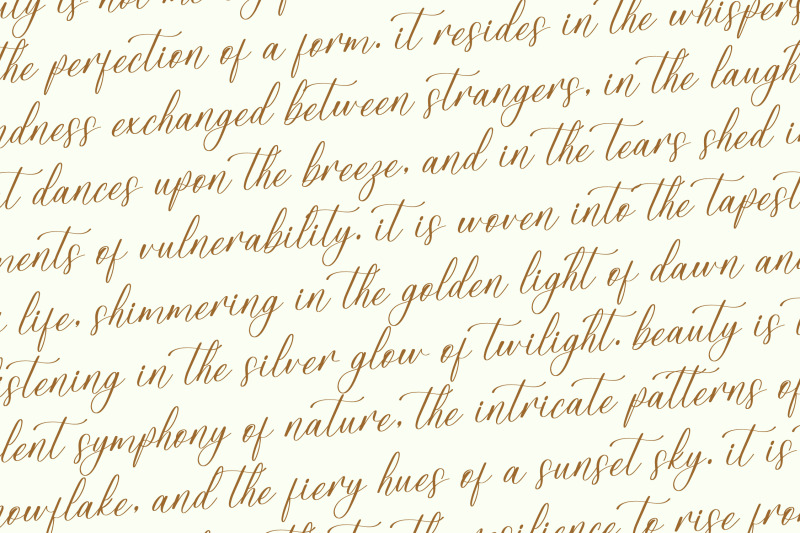 is not
the perfection of a form. it resides in the whispers
ndness exchanged between strangers, in the laugh
t dances upon the breeze, and in the tears shed i
ments of vulnerability. it is woven into the tapest
life, shimmering in the golden light of dawn an
istening in the silver glow of twilight. beauty is
lent symphony of nature, the intricate patterns of
nowflake, and the fiery hues of a sunset sky. it is
resilience to rise fro